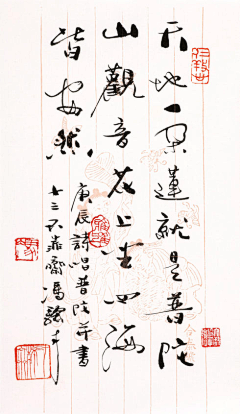 天地一朵蓮就是普陀
山觀音花上坐四海
皆安然
庚辰詩唱普陀并書
七三不非齋馮